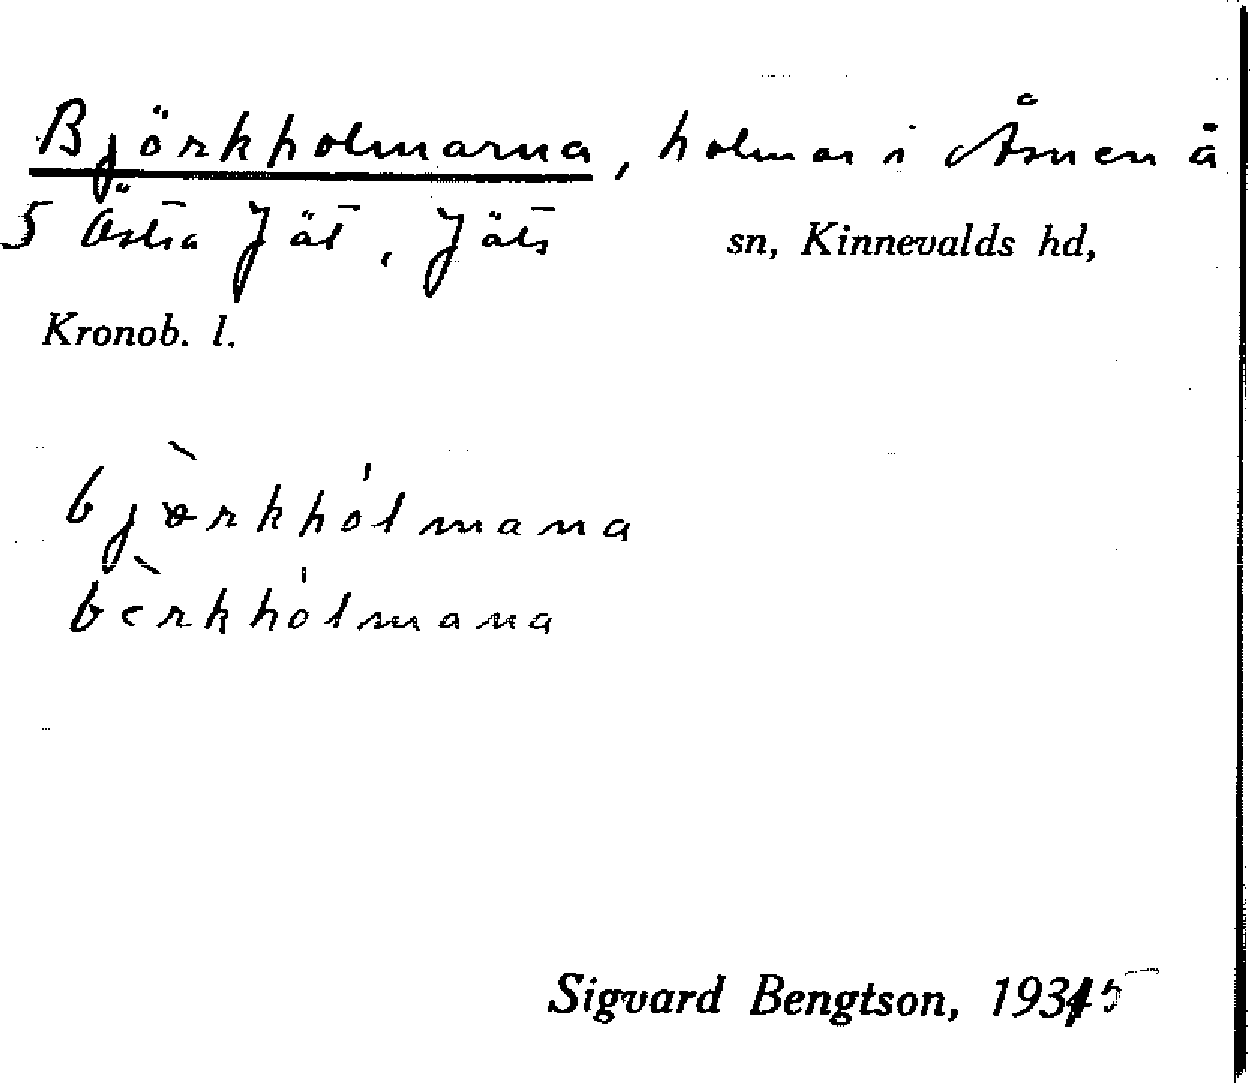 Björkholmarna, holmar i Åsnen å
5 Östra Jät, Jäts sn, Kinnevalds hd,
Kronob. l.
bjɵ̀rkhɵ́lmana
bèrkhólmana
Sigvard Bengtson, 1935